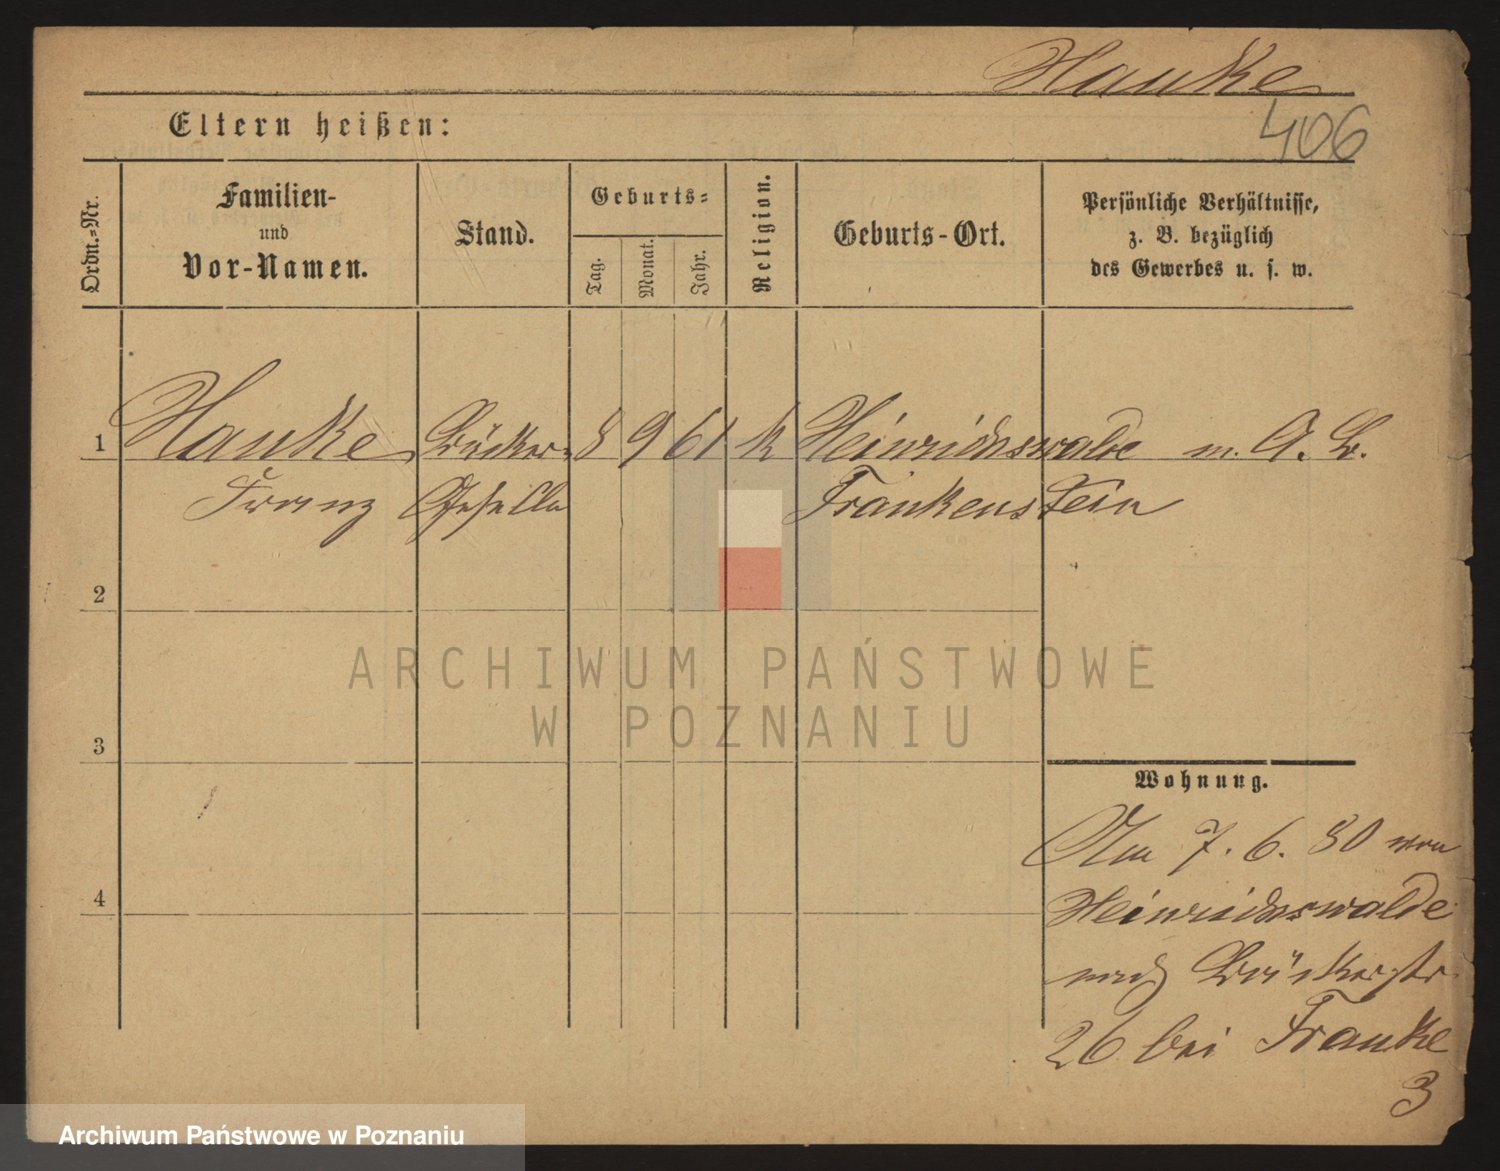 Hauke
406
Eltern heißen:
Ordn.-Nr.
Familien-
und
Vor-Namen.
Stand.
Geburts-
Tag.
Monat.
Jahr.
Religion.
Geburts-Ort.
Persönliche Verhältnisse,
z. B. bezüglich
des Gewerbes u. s. w.
1 Hauke Bäcker- 8 9 61 k Heinrichswalde m. A. B.
Franz Geselle Frankenstein
2
3
4
Wohnung.
Am 7. 6. 80 von
Heinrichswalde
nach Bäckerstr.
26 bei Franke
3
ARCHIWUM PAŃSTWOWE
W POZNANIU
Archiwum Państwowe w Poznaniu